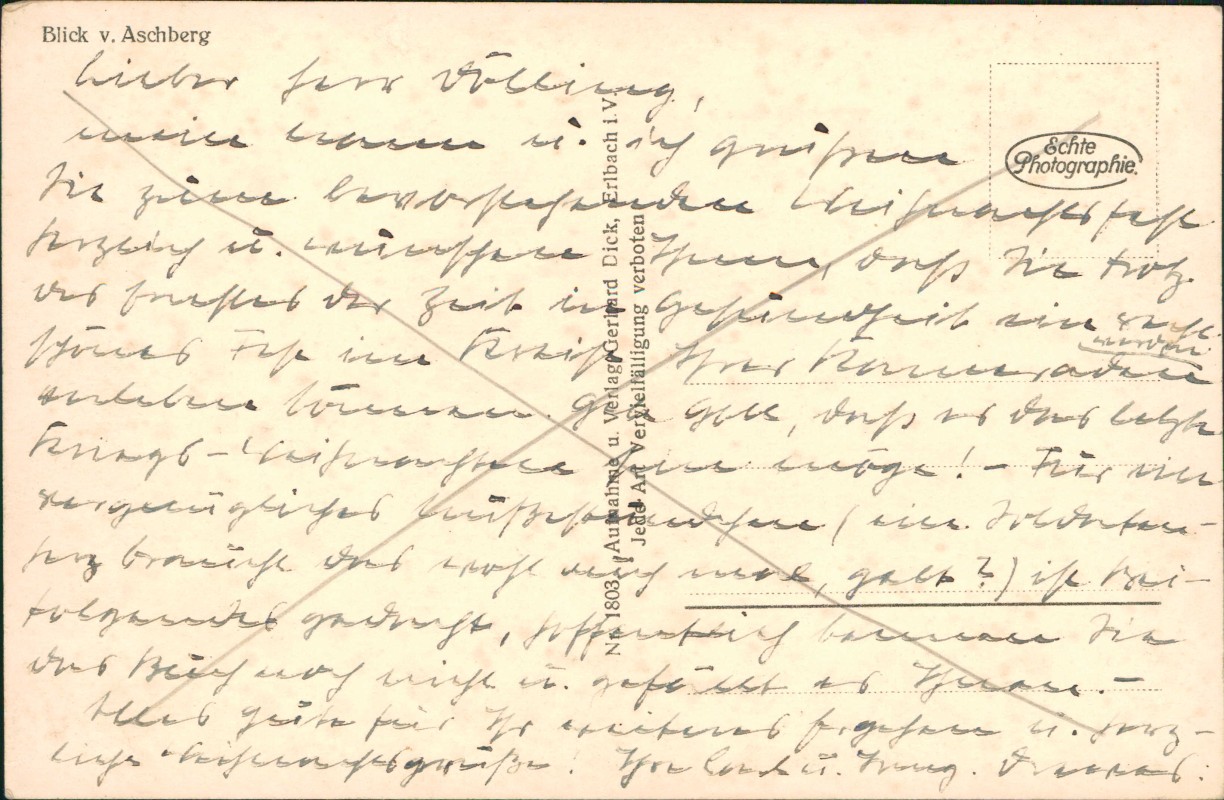 Blick v. Aschberg
Lieber Herr Dölling,
mein Mann u. ich grüßen
Sie zum bevorstehenden Weihnachtsfest
herzlich u. wünschen Ihnen, daß Sie trotz
des Ernstes der Zeit in Gesundheit ein recht
schönes Fest im Kreise Ihrer Kameraden
verleben können. Geb Gott, daß es das letzte
Kriegs-Weihnachten sein möge! – Für ein
vergnügliches Mußestündchen (ein Soldaten-
herz braucht das wohl auch mal, gelt?) ist Bei-
folgendes gedacht, hoffentlich kennen Sie
das Buch noch nicht u. gefällt es Ihnen. –
Alles Gute für Ihr weiteres Ergehen u. herz-
liche Weihnachtsgrüße! Ihre
Echte
Photographie.
Nr. 1803 Aufnahme u. Verlag Gerhard Dick, Erlbach i. V.
Jede Art Vervielfältigung verboten